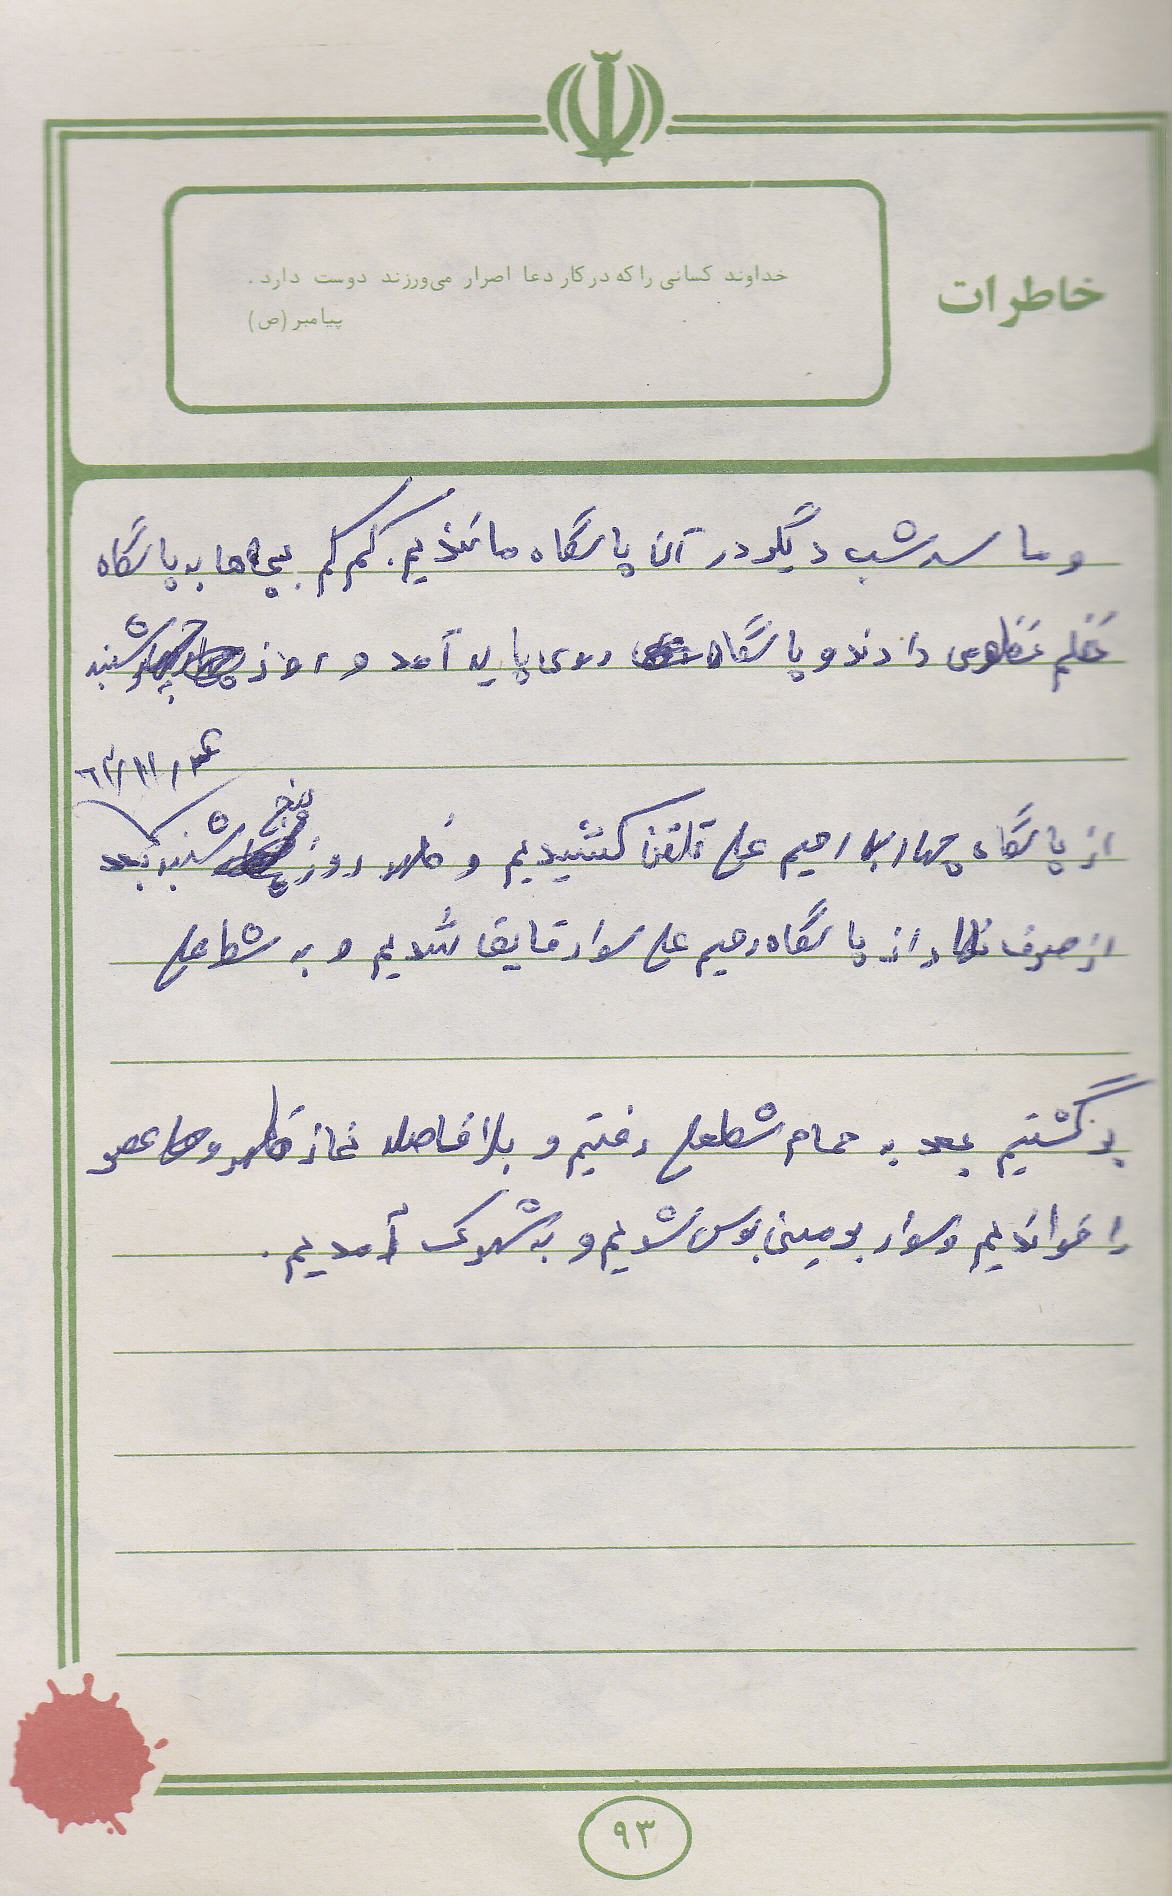 خاطرات
خداوند کسانی را که در کار دعا اصرار می‌ورزند دوست دارد .
پیامبر (ص)
و ما سه شب دیگر در آن پاسگاه ماندیم . کم کم بچه‌ها به پاسگاه
نظم دادند و پاسگاه روی پا آمد و روز چهارشنبه
از پاسگاه چهار به رحیم علی تلفن کشیدیم و ظهر روز پنج شنبه بعد
از صرف نهار از پاسگاه رحیم علی سوار قایق شدیم و به شط علی
برگشتیم بعد به حمام شط علی رفتیم و بلافاصله نماز ظهر و عصر
را خواندیم و سوار بر مینی بوس شدیم و به شهرک آمدیم .
۹۳